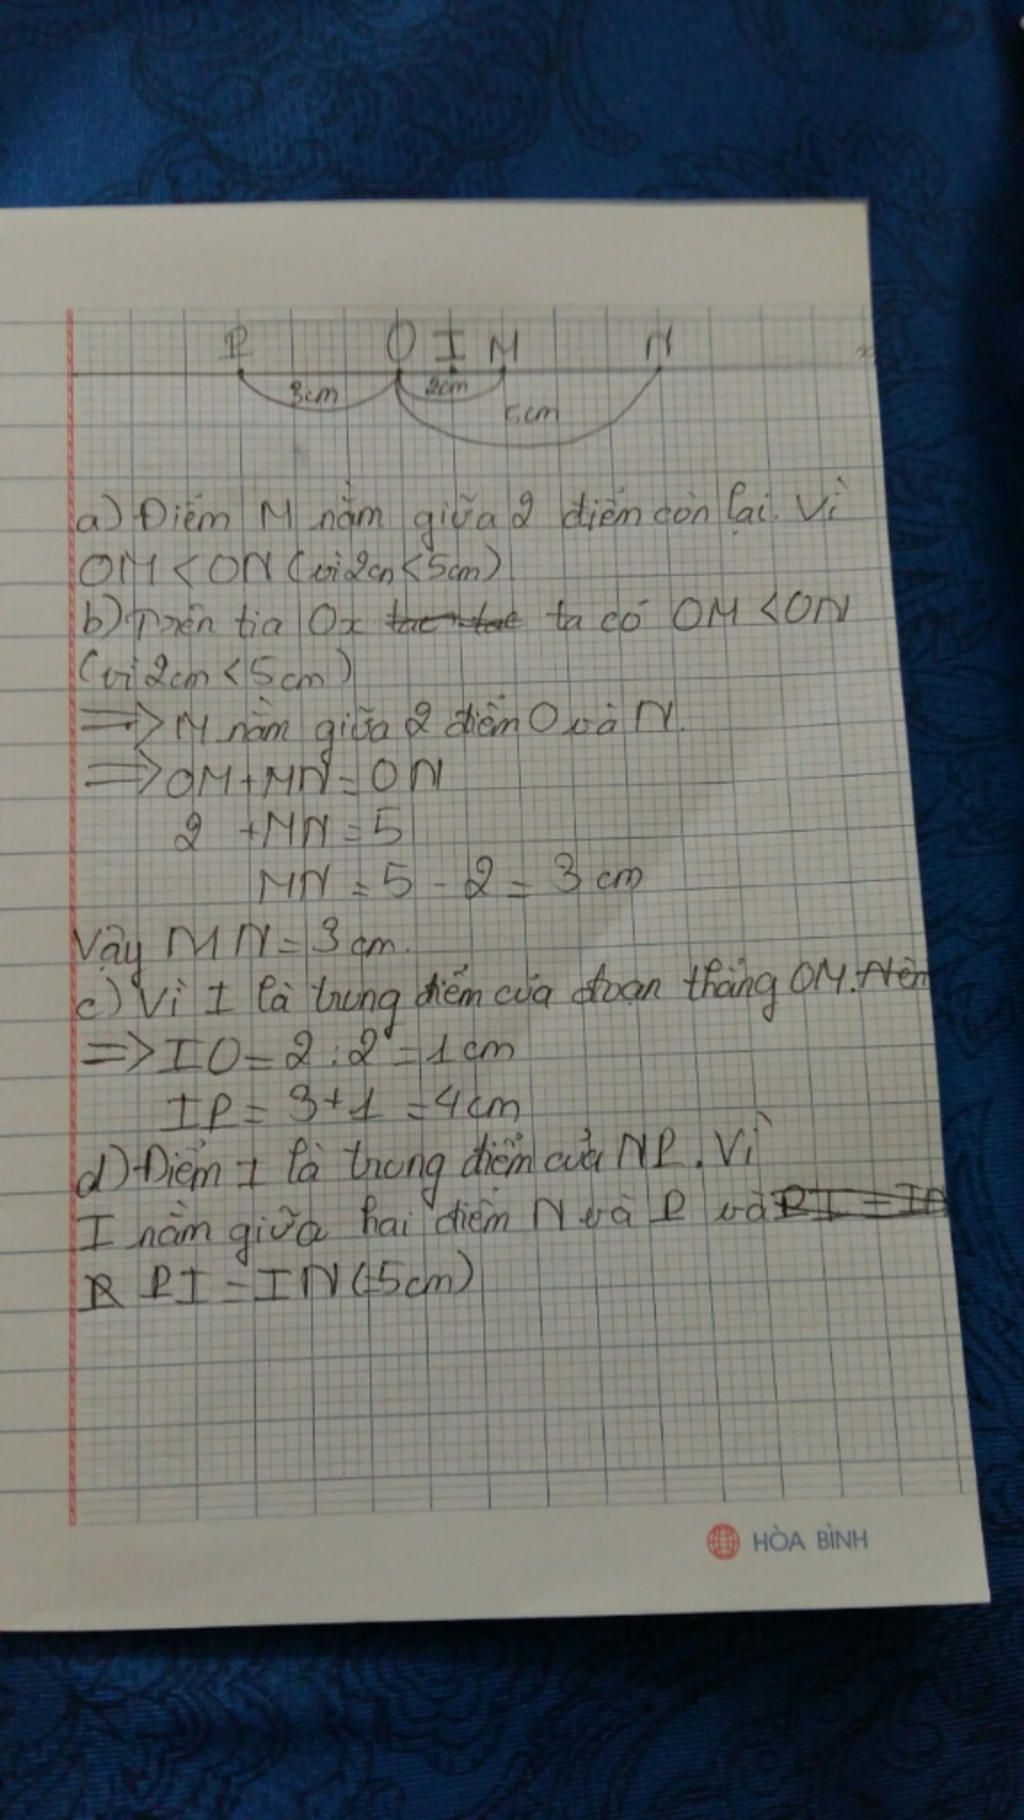 P O I M N x
3cm 2cm 5cm
a) Điểm M nằm giữa 2 điểm còn lại. Vì
OM < ON (vì 2cm < 5cm)
b) Trên tia Ox ta có OM < ON
(vì 2cm < 5cm)
=> M nằm giữa 2 điểm O và N.
=> OM + MN = ON
2 + MN = 5
MN = 5 - 2 = 3 cm
Vậy MN = 3 cm.
c) Vì I là trung điểm của đoạn thẳng OM. Nên
=> IO = 2 : 2 = 1 cm
IP = 3 + 1 = 4 cm
d) Điểm I là trung điểm của NP. Vì
I nằm giữa hai điểm N và P và PI = IN
PI = IN (=5cm)
HÒA BÌNH